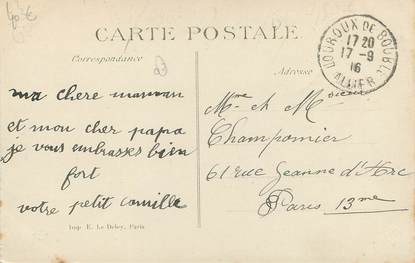 CARTE POSTALE
Correspondance
Adresse
LOUROUX DE BOUBLE
17 20
17 -9
16
ALLIER
ma chere maman
et mon cher papa
je vous embrasses bien
fort
votre petit camille
Mme et Monsieur
Champomier
61 rue Jeanne d'Arc
Paris 13me
Imp. E. Le Deley, Paris